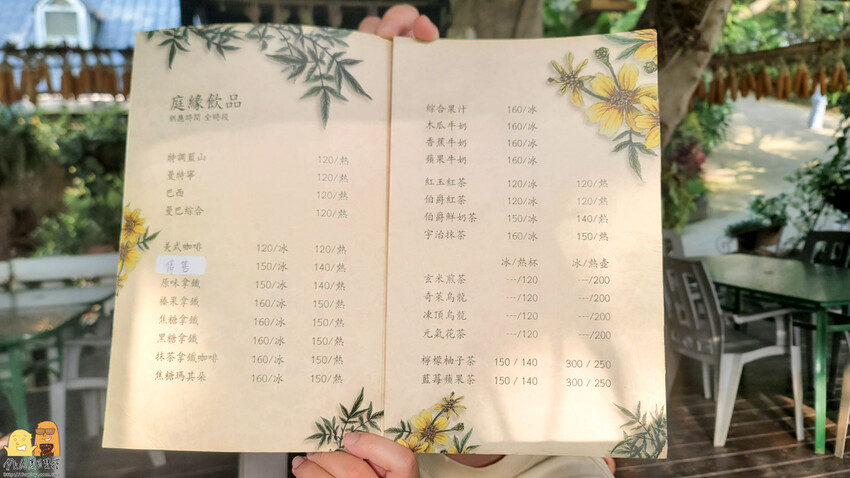 庭緣飲品
供應時間 全時段
特調藍山 120/熱
曼特寧 120/熱
巴西 120/熱
曼巴綜合 120/熱
美式咖啡 120/冰 120/熱
150/冰 140/熱
原味拿鐵 150/冰 140/熱
榛果拿鐵 160/冰 150/熱
焦糖拿鐵 160/冰 150/熱
黑糖拿鐵 160/冰 150/熱
抹茶拿鐵咖啡 160/冰 150/熱
焦糖瑪其朵 160/冰 150/熱
綜合果汁 160/冰
木瓜牛奶 160/冰
香蕉牛奶 160/冰
蘋果牛奶 160/冰
紅玉紅茶 120/冰 120/熱
伯爵紅茶 120/冰 120/熱
伯爵鮮奶茶 150/冰 140/熱
宇治抹茶 160/冰 150/熱
冰/熱杯 冰/熱壺
玄米煎茶 ---/120 ---/200
奇萊烏龍 ---/120 ---/200
凍頂烏龍 ---/120 ---/200
元氣花茶 ---/120 ---/200
檸檬柚子茶 150 / 140 300 / 250
藍莓蘋果茶 150 / 140 300 / 250